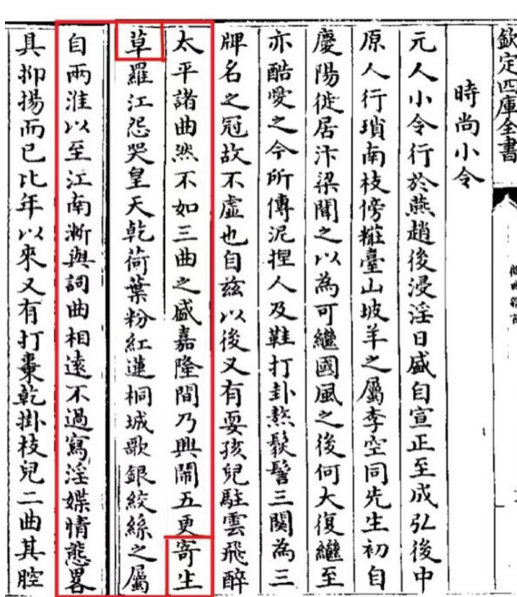 欽定四庫全書
時尚小令
元人小令行於燕趙後浸淫日盛自宣正至成弘後中
原人行瑣南枝傍糚臺山坡羊之屬李空同先生初自
慶陽徙居汴梁聞之以為可繼國風之後何大復繼至
亦酷愛之今所傳泥捏人及鞋打卦熬鬏髻三闋為三
牌名之冠故不虛也自兹以後又有耍孩兒駐雲飛醉
太平諸曲然不如三曲之盛嘉隆間乃興鬧五更寄生
草羅江怨哭皇天乾荷葉粉紅蓮桐城歌銀絞絲之屬
自兩淮以至江南漸與詞曲相遠不過寫淫媟情態畧
具抑揚而已比年以來又有打棗乾掛枝兒二曲其腔